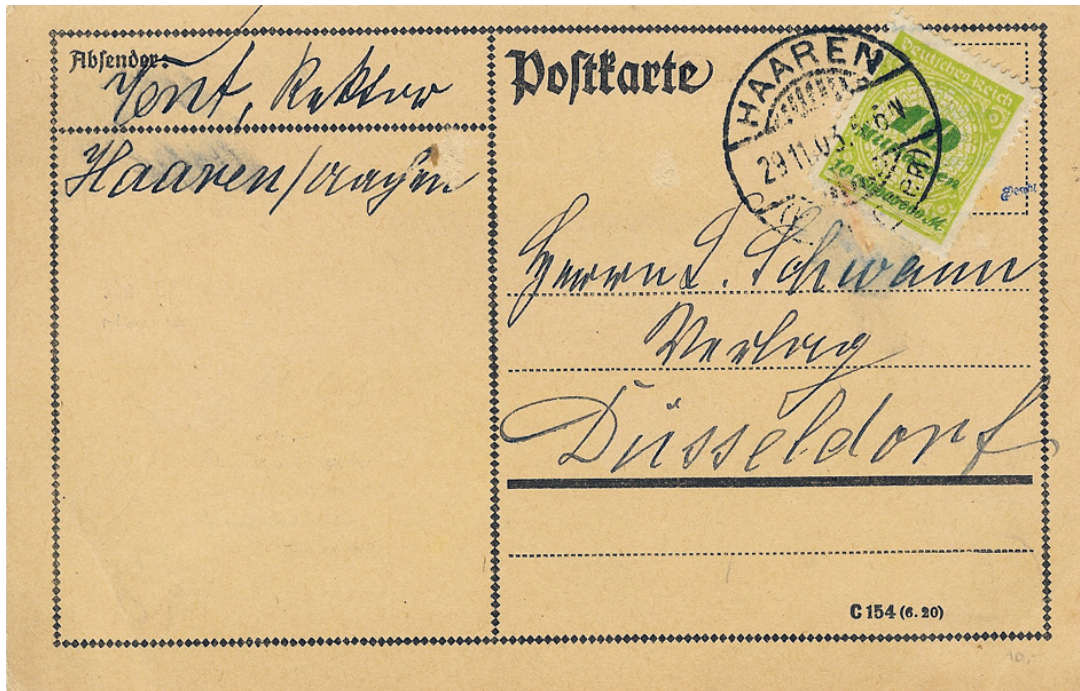 Absender:
Rektor
Haaren/Aachen
Postkarte
HAAREN
29.11.03. 5-6N
Deutsches Reich
10
Milliarden
Herrn L. Schwann
Verlag
Düsseldorf
C 154 (6. 20)
10,-